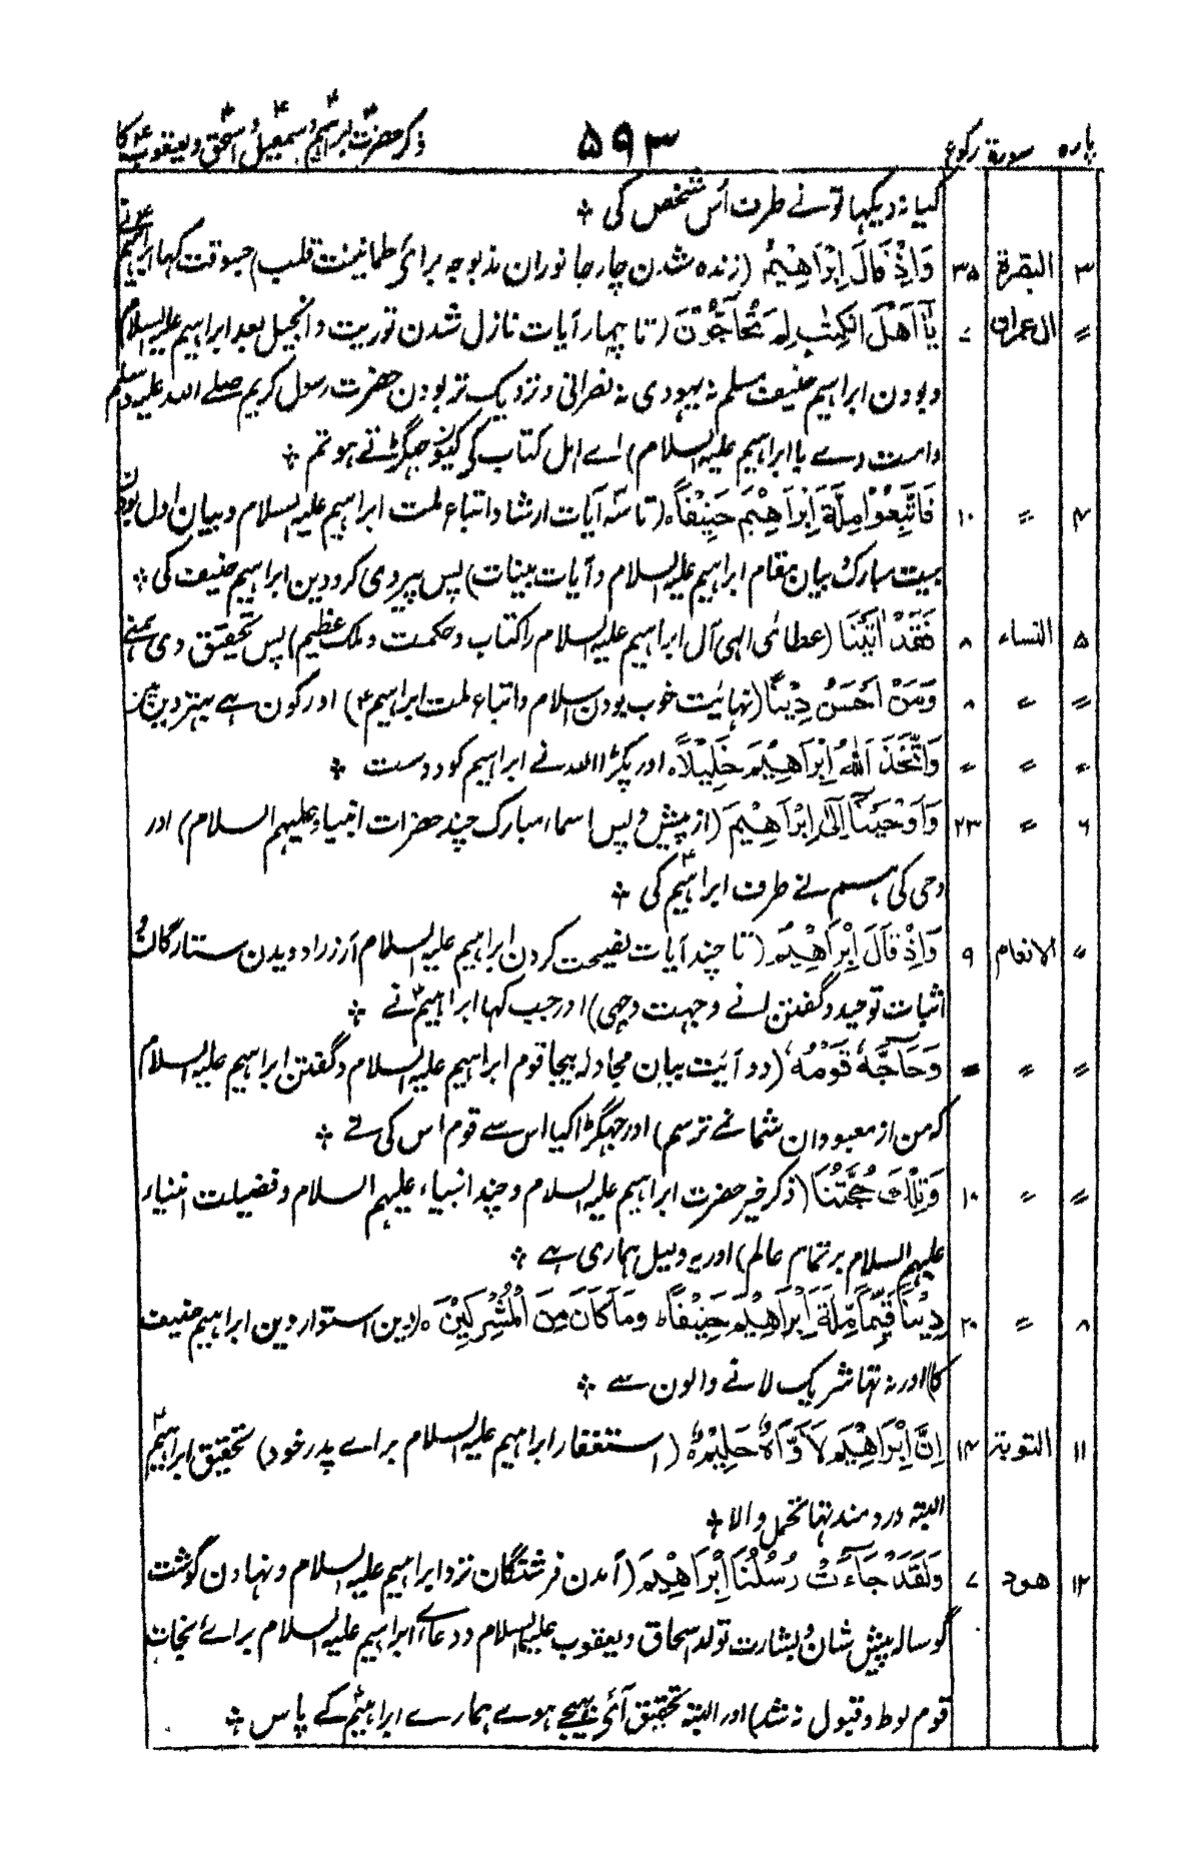 پارہ سورۃ رکوع ۵۹۳ ذکر حضرت ابراہیمؑ و سمعیلؑ و اسحٰقؑ و یعقوبؑ کا
کیا نہ دیکھا تونے طرف اُس شخص کی ÷
۳ البقرۃ ۳۵ وَاِذْ قَالَ اِبْرَاهِيْمُ (زندہ شدن چار جانوران مذبوحہ برائے طمانینت قلب) جسوقت کہا ابراہیمؑ نے
〃 اٰل عمران ۷ يٰۤاَهْلَ الْكِتٰبِ لِمَ تُحَاۤجُّوْنَ (تا چہار آیات نازل شدن توریت و انجیل بعد ابراہیم علیہ السلام
و بودن ابراہیم حنیف مسلم نہ یہودی نہ نصرانی و نزدیک تر بودن حضرت رسول کریم صلے اللہ علیہ وسلم
و امت وے با ابراہیم علیہ السلام) اے اہل کتاب کے کیون جھگڑتے ہو تم ÷
۴ 〃 ۱۰ فَاتَّبِعُوْا مِلَّةَ اِبْرَاهِيْمَ حَنِيْفًا ؕ (تا سہ آیات ارشاد اتباع ملت ابراہیم علیہ السلام و بیان اول بودن
بیت مبارک و بیان مقام ابراہیم علیہ السلام و آیات بینات) پس پیروی کرو دین ابراہیم حنیف کی ÷
۵ النساء ۸ فَقَدْ اٰتَيْنَا (عطائ الہی آل ابراہیم علیہ السلام را کتاب و حکمت و ملک عظیم) پس تحقیق دی ہمنے
〃 〃 ۸ وَمَنْ اَحْسَنُ دِيْنًا (نہائت خوب بودن اسلام و اتباع ملت ابراہیم ؑ) اور کون ہے بہتر دین مین
〃 〃 〃 وَاتَّخَذَ اللّٰهُ اِبْرَاهِيْمَ خَلِيْلًا ۝ اور پکڑا اللہ نے ابراہیم کو دوست ÷
۶ 〃 ۲۳ وَاَوْحَيْنَاۤ اِلٰۤى اِبْرَاهِيْمَ (از پیش و پس اسماء مبارک چند حضرات انبیاء علیہم السلام) اور
وحی کی ہم نے طرف ابراہیمؑ کی ÷
〃 الانعام ۹ وَاِذْ قَالَ اِبْرَاهِيْمُ (تا چند آیات نصیحت کردن ابراہیم علیہ السلام آزر را و دیدن ستارگان و
اثبات توحید و گفتن انے وجہت وجہی) اور جب کہا ابراہیمؑ نے ÷
〃 〃 〃 وَحَاۤجَّهٗ قَوْمُهٗ ؕ (دو آئیت بیان مجادلہ بیجا قوم ابراہیم علیہ السلام و گفتن ابراہیم علیہ السلام
کہ من از معبودان شما نے ترسم) اور جھگڑا کیا اس سے قوم اس کی نے ÷
〃 〃 ۱۰ وَتِلْكَ حُجَّتُنَا (ذکر خیر حضرت ابراہیم علیہ السلام و چند انبیاء علیہم السلام و فضیلت انبیاء
علیہم السلام بر تمام عالم) اور یہ دلیل ہماری ہے ÷
۸ 〃 ۲۰ دِيْنًا قِيَمًا مِّلَّةَ اِبْرَاهِيْمَ حَنِيْفًا ۚ وَمَا كَانَ مِنَ الْمُشْرِكِيْنَ ۝ (دین استوار دین ابراہیم حنیف
کا) اور نہ تھا شریک لانے والون سے ÷
۱۱ التوبۃ ۱۴ اِنَّ اِبْرَاهِيْمَ لَاَوَّاهٌ حَلِيْمٌ ۝ (استغفار ابراہیم علیہ السلام براے پدر خود) تحقیق ابراہیمؑ
البتہ دردمند تھا تحمل والا ÷
۱۲ هود ۷ وَلَقَدْ جَاۤءَتْ رُسُلُنَاۤ اِبْرَاهِيْمَ (آمدن فرشتگان نزد ابراہیم علیہ السلام و نہادن گوشت
گوسالہ پیش شان و بشارت تولد اسحاق و یعقوب علیہما السلام و دعاے ابراہیم علیہ السلام برائے نجات
قوم لوط و قبول نہ شد) اور البتہ تحقیق آئے بھیجے ہوے ہمارے ابراہیمؑ کے پاس ÷